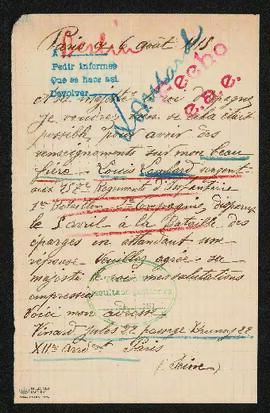 Paris le 6 août 1915
Berlin
A
Pedir informes
Que se hace así
Devolver
Hecho
e.a.e.
A sa Majesté le Roi d'Espagne
Je voudrais bien si cela était
possible, pour avoir des
renseignements sur mon beau
frère Louis sergent
aux Régiment d'Infanterie
1er Bataillon Compagnie, disparu
le 5 avril à la Bataille des
éparges en attendant une
réponse veuillez agréer sa
majesté le roi mes salutations
empressées
Voici mon adresse
Vinard Jules 22 passage Brunoy 22
XIIe arrd t Paris
(Seine)